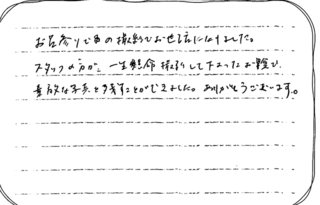 お宮参りでの撮影でお世話になりました。
スタッフの方が、一生懸命撮影して下さったお陰で、
素敵な写真を残すことができました。ありがとうございます。